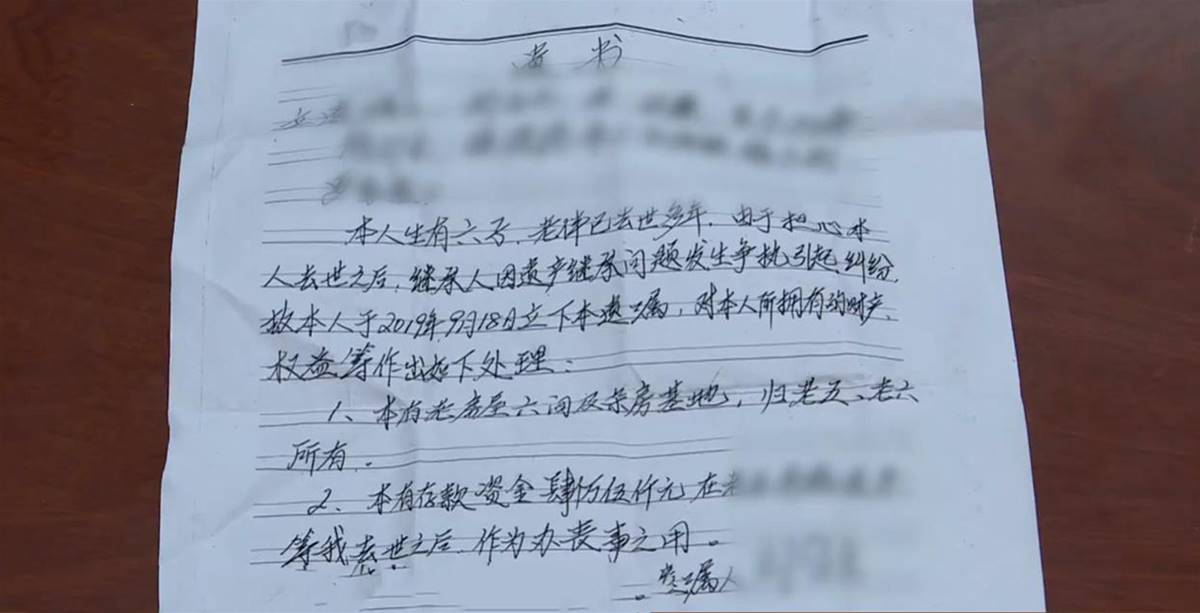 遗 书
立遗
本人生有六子,老伴已去世多年,由于担心本
人去世之后,继承人因遗产继承问题发生争执引起纠纷,
故本人于2019年9月18日立下本遗嘱,对本人所拥有的财产、
权益等作出如下处理:
1、本有老房屋六间及余房基地,归老五、老六
所有。
2、本有存款资金肆万伍仟元 在
等我去世之后,作为办丧事之用。
立遗嘱人